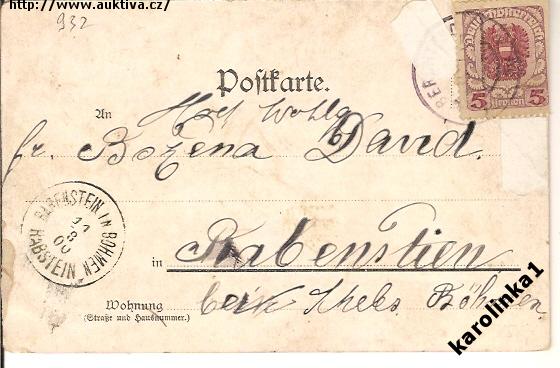 http://www.auktiva.cz/
932
Postkarte.
Deutschösterreich
5 5
Kronen
An
fr. Božena David.
RABENSTEIN IN BÖHMEN
11
8
00
RABSTEIN
in Rabenstien
Wohnung
(Straße und Hausnummer.)
Böhmen
karolinka1